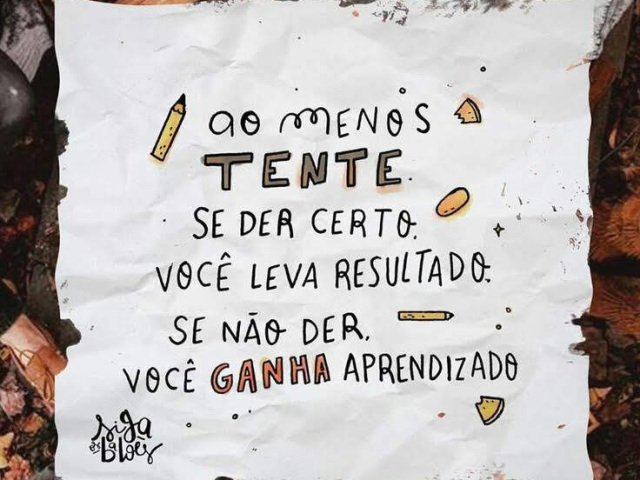 ao MENOS
TENTE.
SE DER CERTO,
VOCÊ LEVA RESULTADO.
SE NÃO DER,
VOCÊ GANHA APRENDIZADO
siga
os
balões